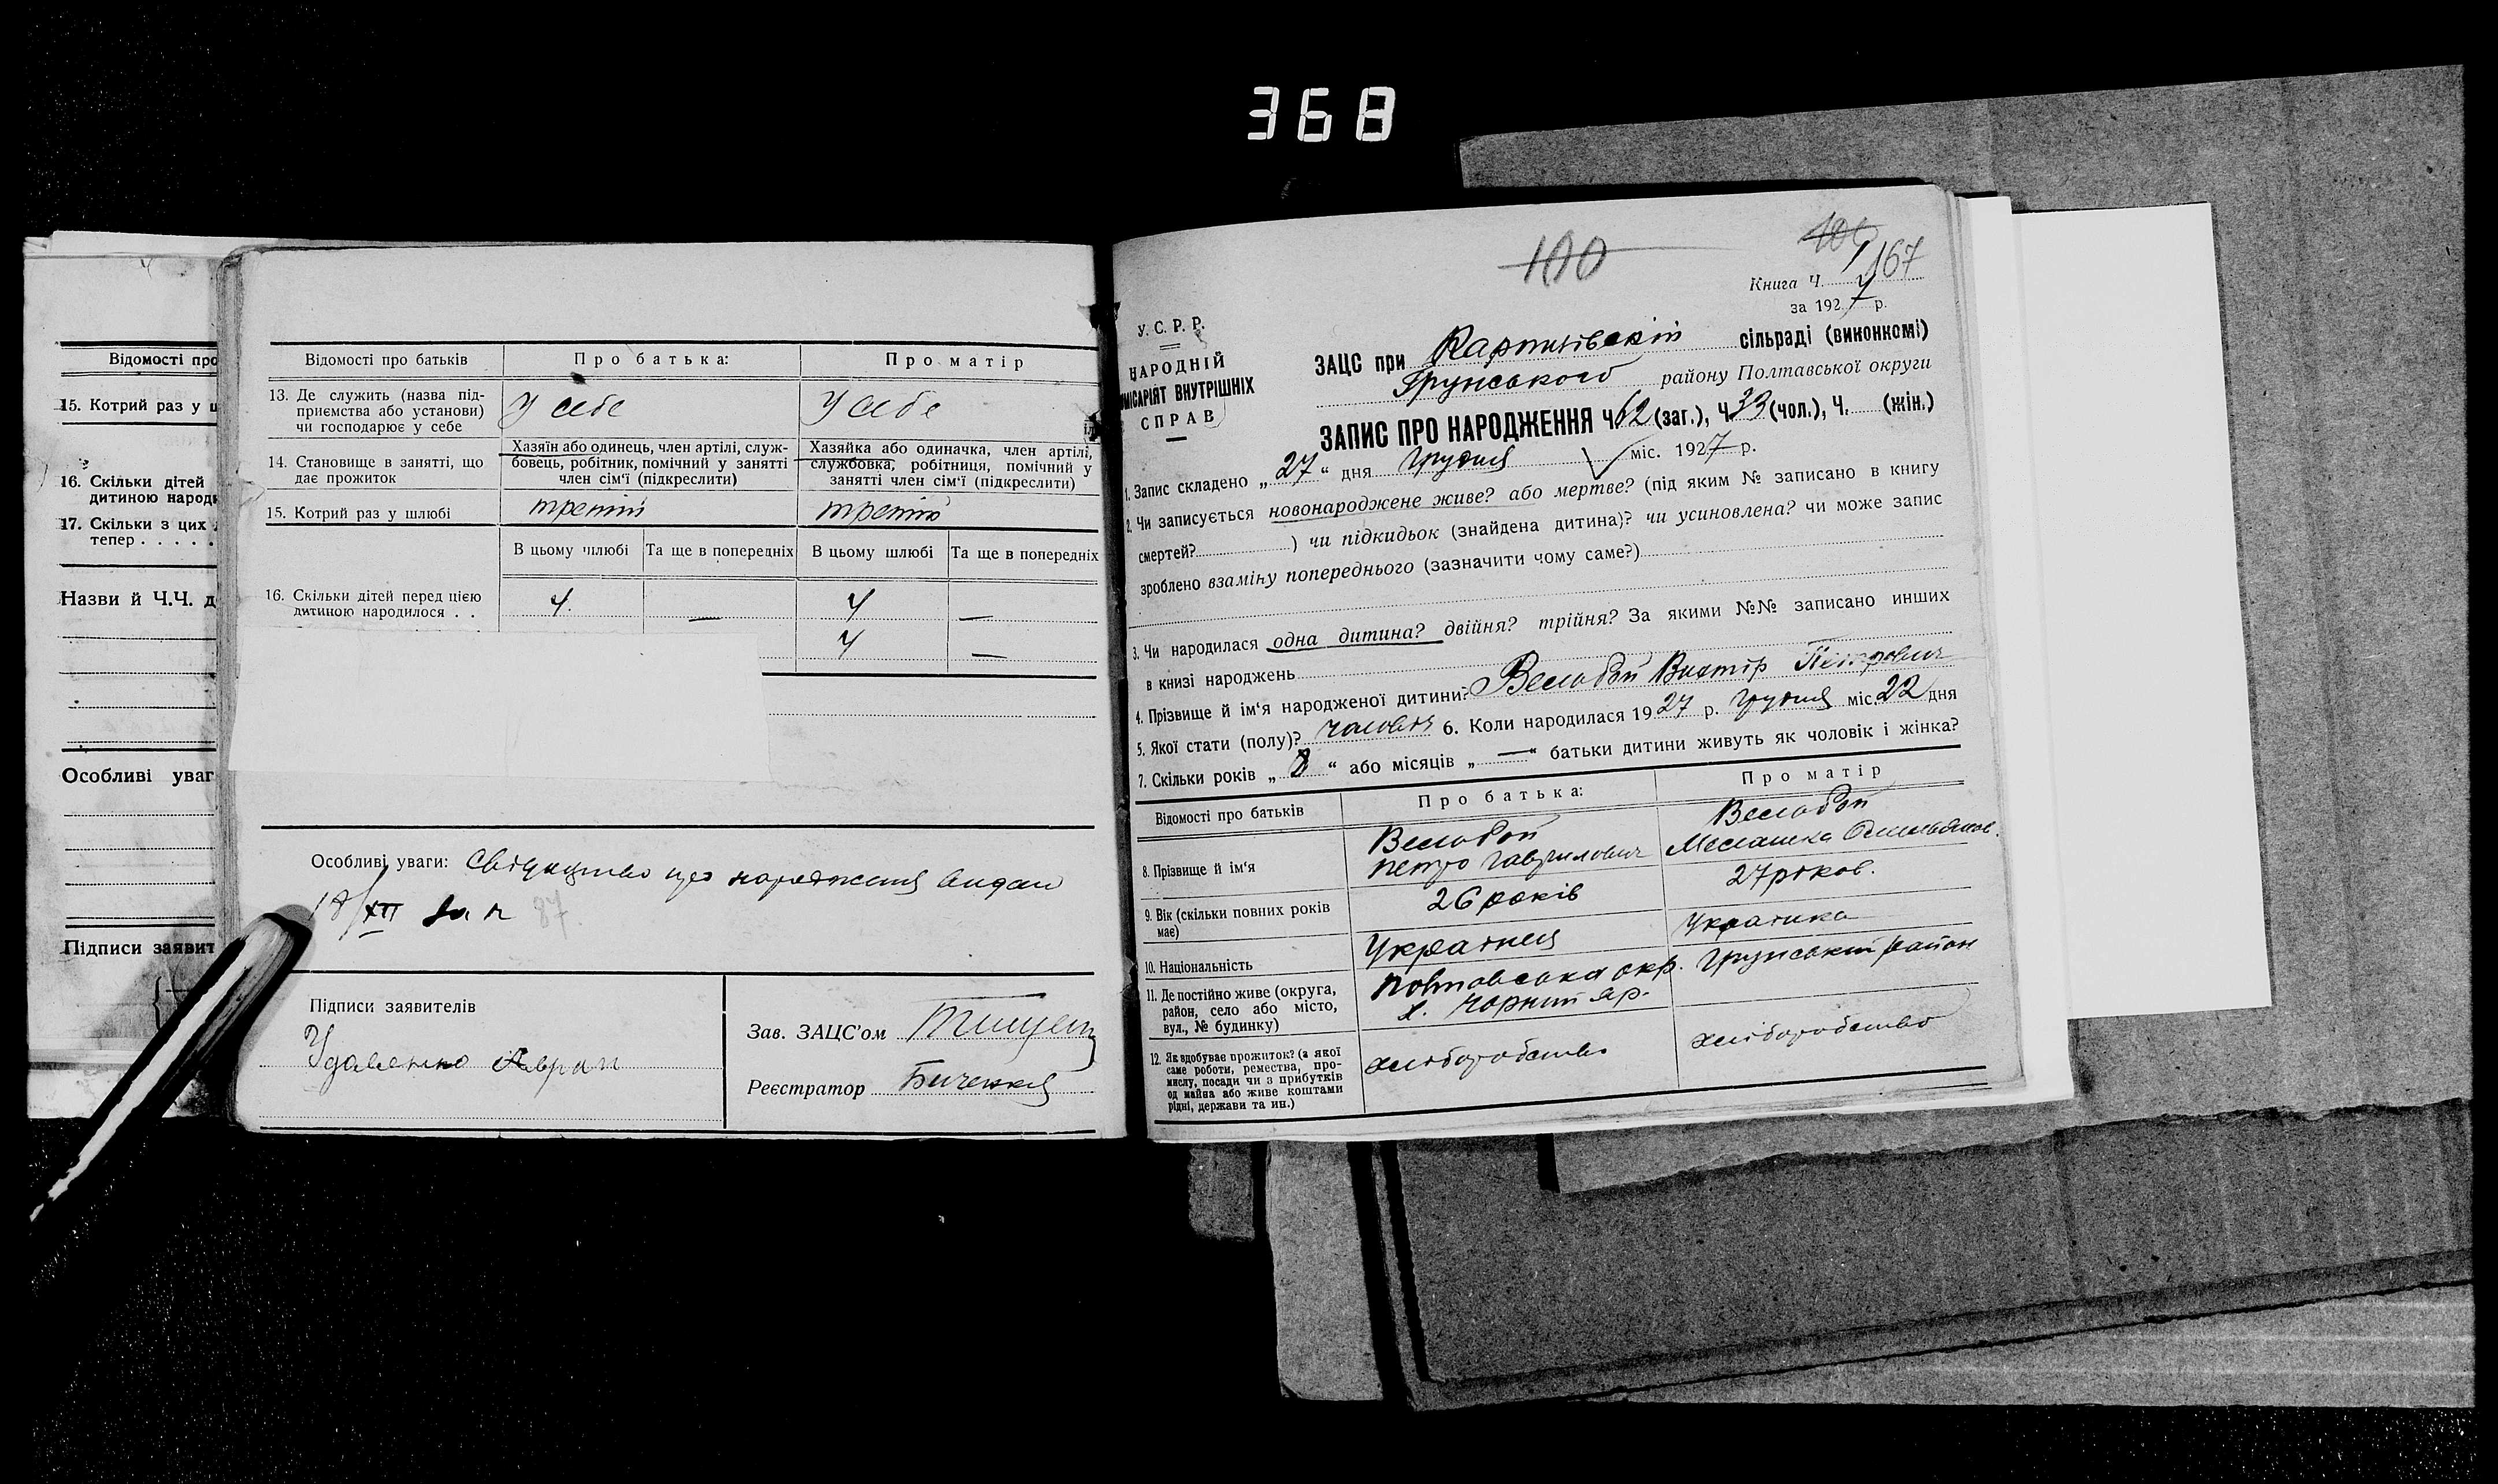 368
Відомості про
15. Котрий раз у ш
16. Скільки дітей
дитиною народ
17. Скільки з цих
тепер . . . . .
Назви й Ч.Ч. д
Особливі уваг
Підписи заявит
Відомості про батьків
Про батька:
Про матір
13. Де служить (назва під-
приємства або установи)
чи господарює у себе
У себе
У себе
14. Становище в занятті, що
дає прожиток
Хазяїн або одинець, член артілі, служ-
бовець, робітник, помічний у занятті
член сім'ї (підкреслити)
Хазяйка або одиначка, член артілі,
службовка, робітниця, помічний у
занятті член сім'ї (підкреслити)
15. Котрий раз у шлюбі
третій
третій
В цьому шлюбі
Та ще в попередніх
В цьому шлюбі
Та ще в попередніх
16. Скільки дітей перед цією
дитиною народилося . .
4.
—
4
—
4
—
Особливі уваги: Свідоцтво про народження видан
18/XII за №
87.
Підписи заявителів
Зав. ЗАЦС'ом
Реєстратор
100
167
Книга Ч.
за 1927 р.
У. С. Р. Р.
НАРОДНІЙ
МІСАРІЯТ ВНУТРІШНІХ
СПРАВ
ЗАЦС при сільраді (виконкомі)
Грунського району Полтавської округи
ЗАПИС ПРО НАРОДЖЕННЯ ч. 62 (заг.), Ч. 33 (чол.), Ч. (жін.)
1. Запис складено „27“ дня грудня міс. 1927 р.
2. Чи записується новонароджене живе? або мертве? (під яким № записано в книгу
смертей? ) чи підкидьок (знайдена дитина)? чи усиновлена? чи може запис
зроблено взаміну попереднього (зазначити чому саме?)
3. Чи народилася одна дитина? двійня? трійня? За якими №№ записано инших
в книзі народжень
4. Прізвище й ім'я народженої дитини? Велобой Віктор Петрович
5. Якої стати (полу)? чоловіч 6. Коли народилася 1927 р. грудня міс. 22 дня
7. Скільки років „8“ або місяців „—“ батьки дитини живуть як чоловік і жінка?
Відомості про батьків
Про батька:
Про матір
8. Прізвище й ім'я
Велобой
Петро Гаврилович
Велобой
9. Вік (скільки повних років
має)
26 років
27 років.
10. Національність
Українця
Українка
11. Де постійно живе (округа,
район, село або місто,
вул., № будинку)
Повтавська окр.
х. Чорний Яр.
Грунський район
12. Як здобуває прожиток? (з якої
саме роботи, ремества, про-
мислу, посади чи з прибутків
од майна або живе коштами
рідні, держави та ин.)
хліборобство
хліборобство